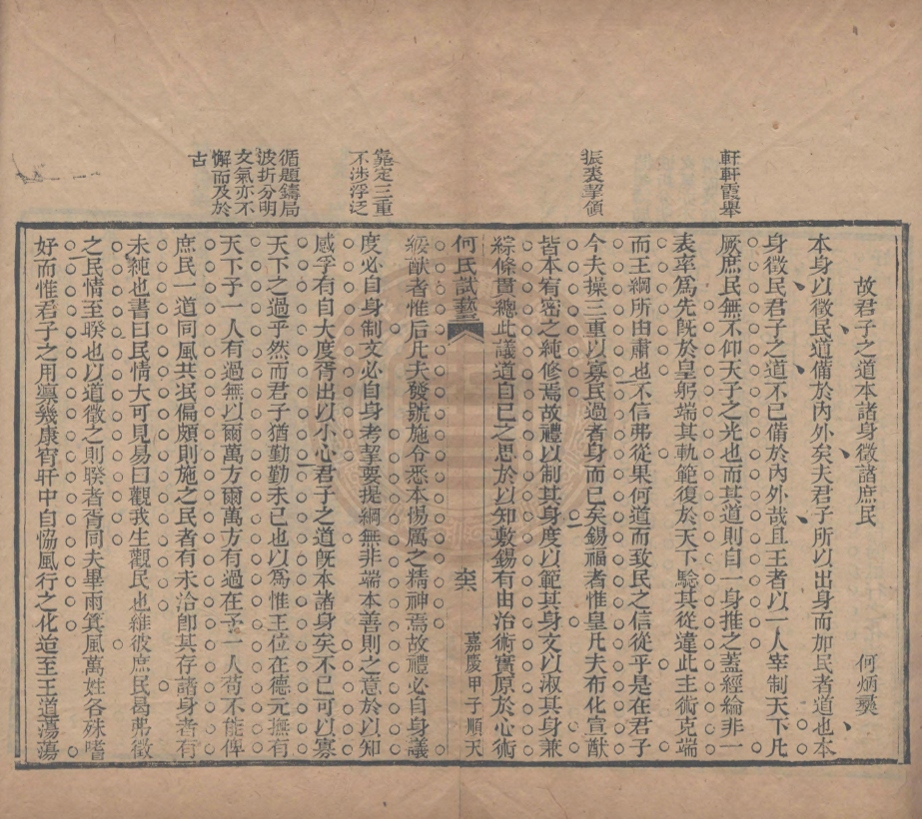 軒軒霞舉
振裘挈領
靠定三重
不涉浮泛
循題鑄局
波折分明
文氣亦不
懈而及於
古
故君子之道本諸身徵諸庶民
何炳奭
本身以徵民道備於內外矣夫君子所以出身而加民者道也本
身徵民君子之道不已備於內外哉且王者以一人宰制天下凡
厥庶民無不仰天子之光也而其道則自一身推之蓋經綸非一
表率爲先旣於皇躬端其軌範復於天下驗其從違此主術克端
而王綱所由肅也不信弗從果何道而致民之信從乎是在君子
今夫操三重以寡民過者身而已矣錫福者惟皇凡夫布化宣猷
皆本宥密之純修焉故禮以制其身度以範其身文以淑其身兼
綜條貫總此議道自己之思於以知敷錫有由治術實原於心術
何氏試藝
嘉慶甲子順天
綏猷者惟后凡夫發號施令悉本惕厲之精神焉故禮必自身議
度必自身制文必自身考挈要提綱無非端本善則之意於以知
感孚有自大度胥出以小心君子之道旣本諸身矣不已可以寡
天下之過乎然而君子猶勤勤未已也以爲惟王位在德元撫有
天下予一人有過無以爾萬方爾萬方有過在予一人苟不能俾
庶民一道同風共泯偏頗則施之民者有未洽卽其存諸身者有
未純也書曰民情大可見易曰觀我生觀民也維彼庶民曷弗徵
之民情至暌也以道徵之則暌者胥同夫畢雨箕風萬姓各殊嗜
好而惟君子之用稟幾康宵旰中自恊風行之化迨至王道蕩蕩